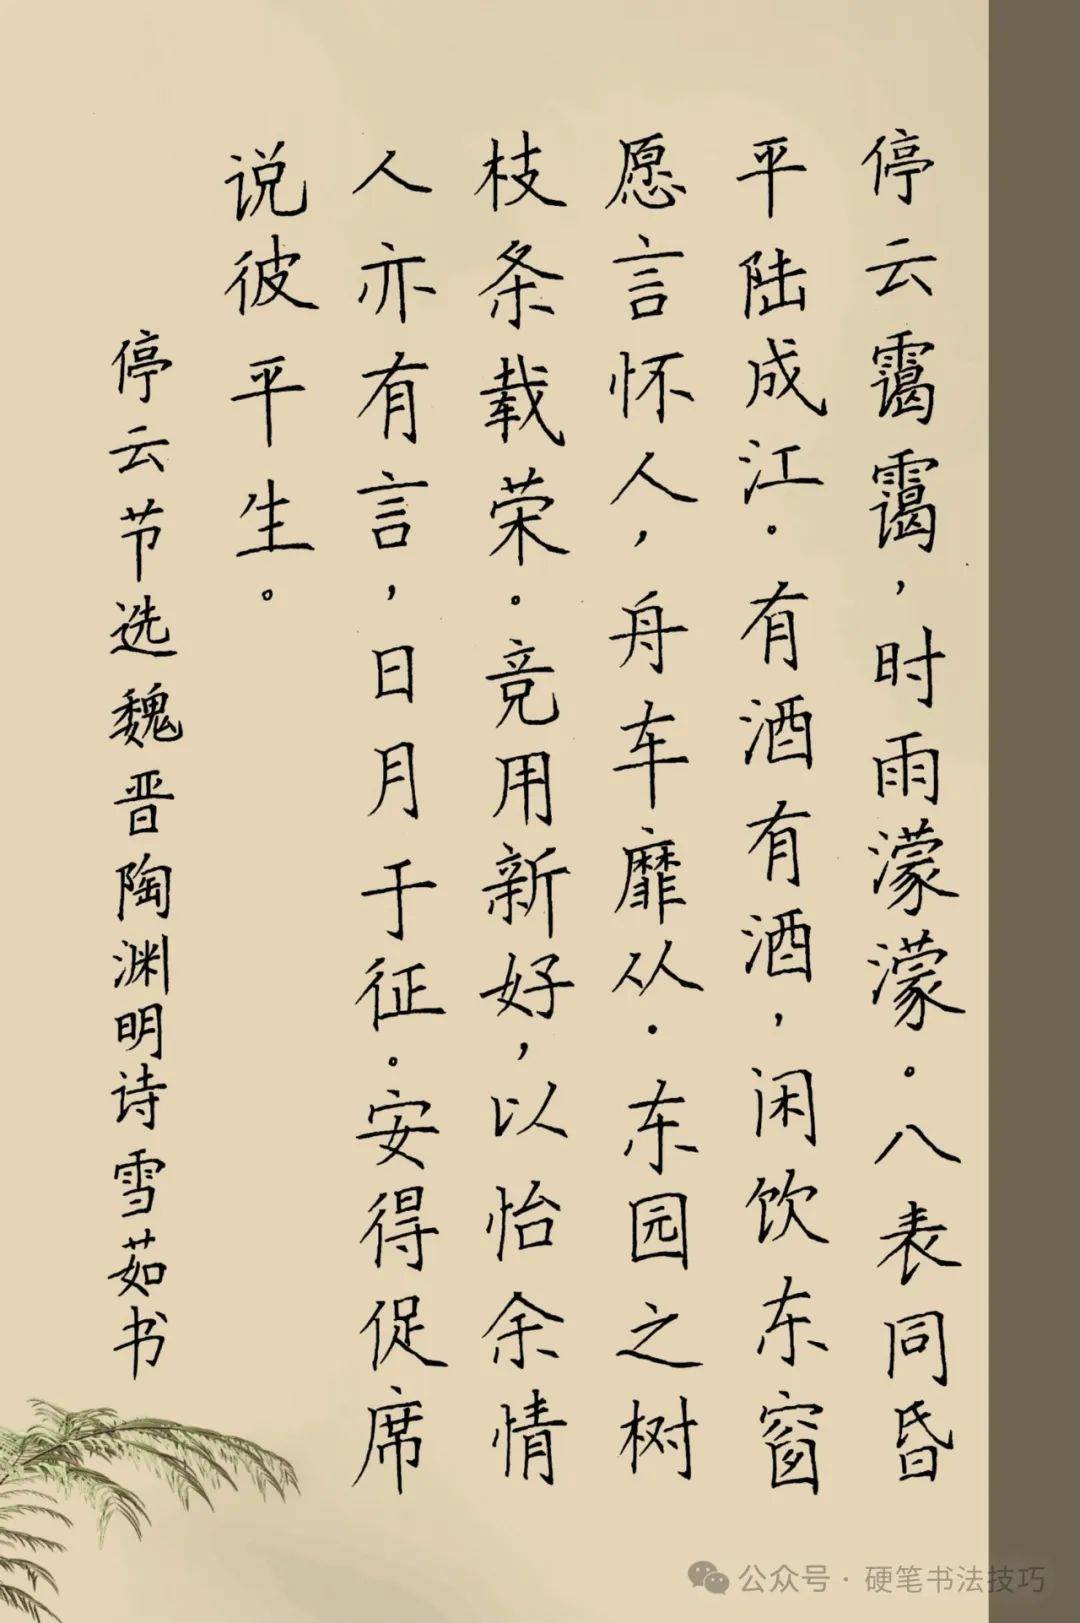 停云霭霭，时雨濛濛。八表同昏
平陆成江.有酒有酒，闲饮东窗
愿言怀人，舟车靡从.东园之树
枝条载荣.竞用新好，以怡余情
人亦有言，日月于征。安得促席
说彼平生。
停云节选魏晋陶渊明诗雪茹书
公众号·硬笔书法技巧